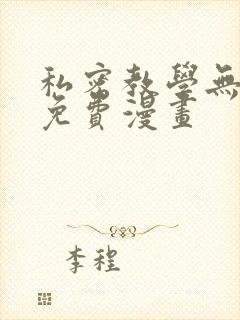 私密教學無
免費漫畫
李程